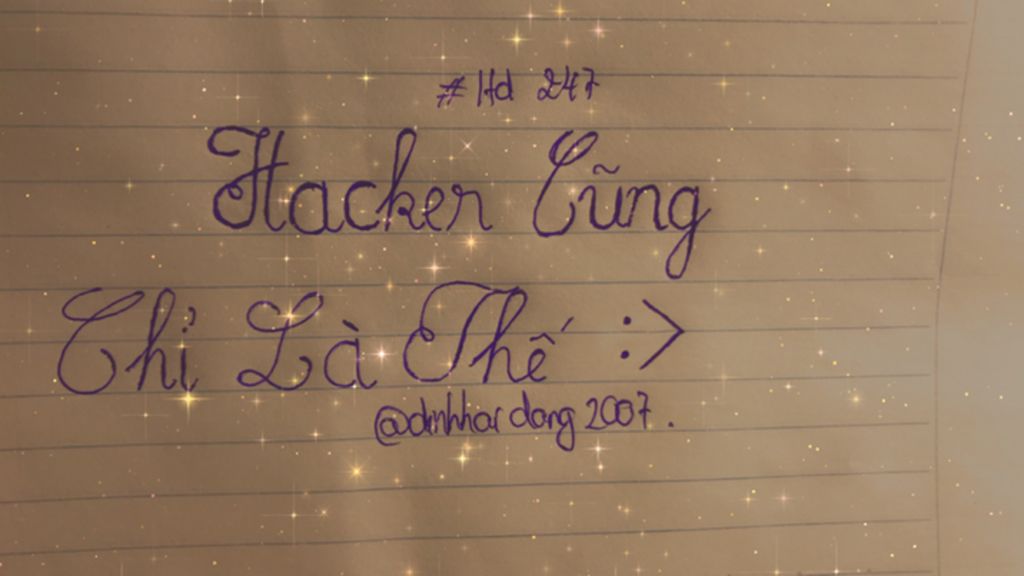 #Hd 247
Hacker Cũng
Chỉ Là Thế :>
@dinhhaidang2007.